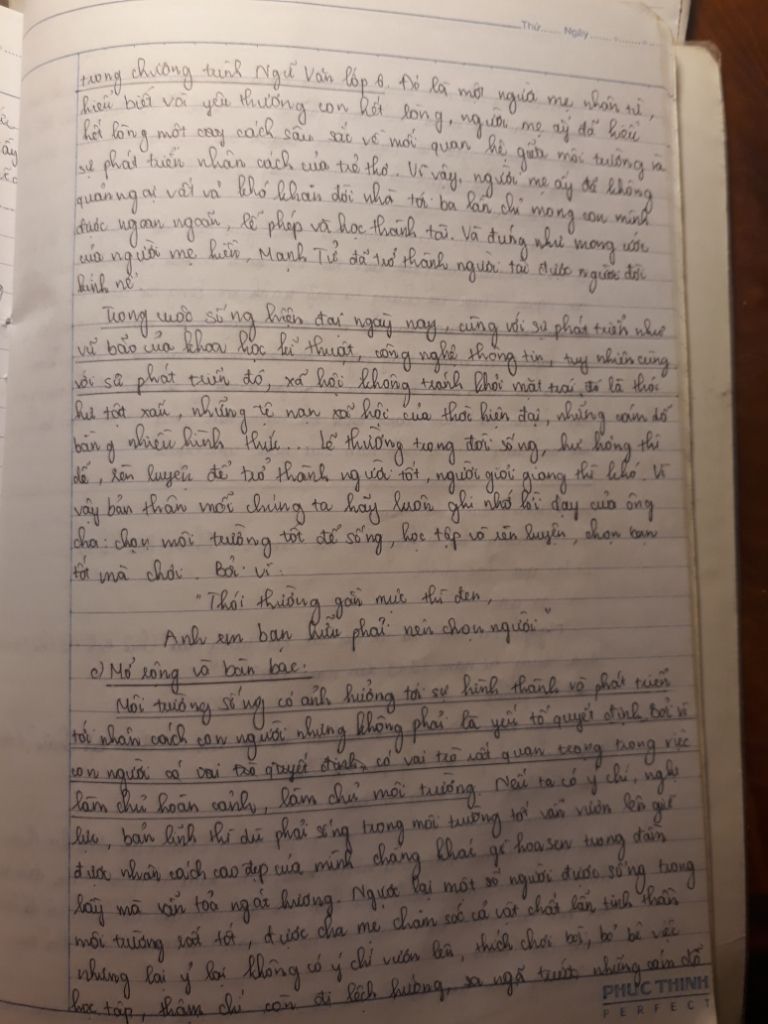 Thứ...... Ngày......
trong chương trình Ngữ Văn lớp 6. Đó là một người mẹ nhân từ,
hiểu biết và yêu thương con hết lòng, người mẹ ấy đã hiểu
hết lòng một cách sâu sắc về mối quan hệ giữa môi trường và
sự phát triển nhân cách của trẻ thơ. Vì vậy, người mẹ ấy đã không
quản ngại vất vả khó khăn dời nhà tới ba lần chỉ mong con mình
được ngoan ngoãn, lễ phép và học thành tài. Và đúng như mong ước
của người mẹ hiền, Mạnh Tử đã trở thành người tài được người đời
kính nể.
Trong cuộc sống hiện đại ngày nay, cùng với sự phát triển như
vũ bão của khoa học kĩ thuật, công nghệ thông tin, tuy nhiên cùng
với sự phát triển đó, xã hội không tránh khỏi mặt trái, đó là thói
hư tật xấu, những tệ nạn xã hội của thời hiện đại, những cám dỗ
bằng nhiều hình thức... Lẽ thường trong đời sống, hư hỏng thì
dễ, rèn luyện để trở thành người tốt, người giỏi giang thì khó. Vì
vậy bản thân mỗi chúng ta hãy luôn ghi nhớ lời dạy của ông
cha: chọn môi trường tốt để sống, học tập và rèn luyện, chọn bạn
tốt mà chơi. Bởi vì:
"Thói thường gần mực thì đen,
Anh em bạn hữu phải nên chọn người"
c) Mở rộng và bàn bạc:
Môi trường sống có ảnh hưởng tới sự hình thành và phát triển
tới nhân cách con người nhưng không phải là yếu tố quyết định. Bởi vì
con người có vai trò quyết định, có vai trò rất quan trọng trong việc
làm chủ hoàn cảnh, làm chủ môi trường. Nếu ta có ý chí, nghị
lực, bản lĩnh thì dù phải sống trong môi trường tồi vẫn vươn lên giữ
được nhân cách cao đẹp của mình chẳng khác gì hoa sen trong đầm
lầy mà vẫn toả ngát hương. Ngược lại một số người được sống trong
môi trường rất tốt, được cha mẹ chăm sóc cả vật chất lẫn tinh thần
nhưng lại ỷ lại không có ý chí vươn lên, thích chơi bời, bỏ bê việc
học tập, thậm chí còn đi lệch hướng, sa ngã trước những cám dỗ
PHUC THINH
PERFECT